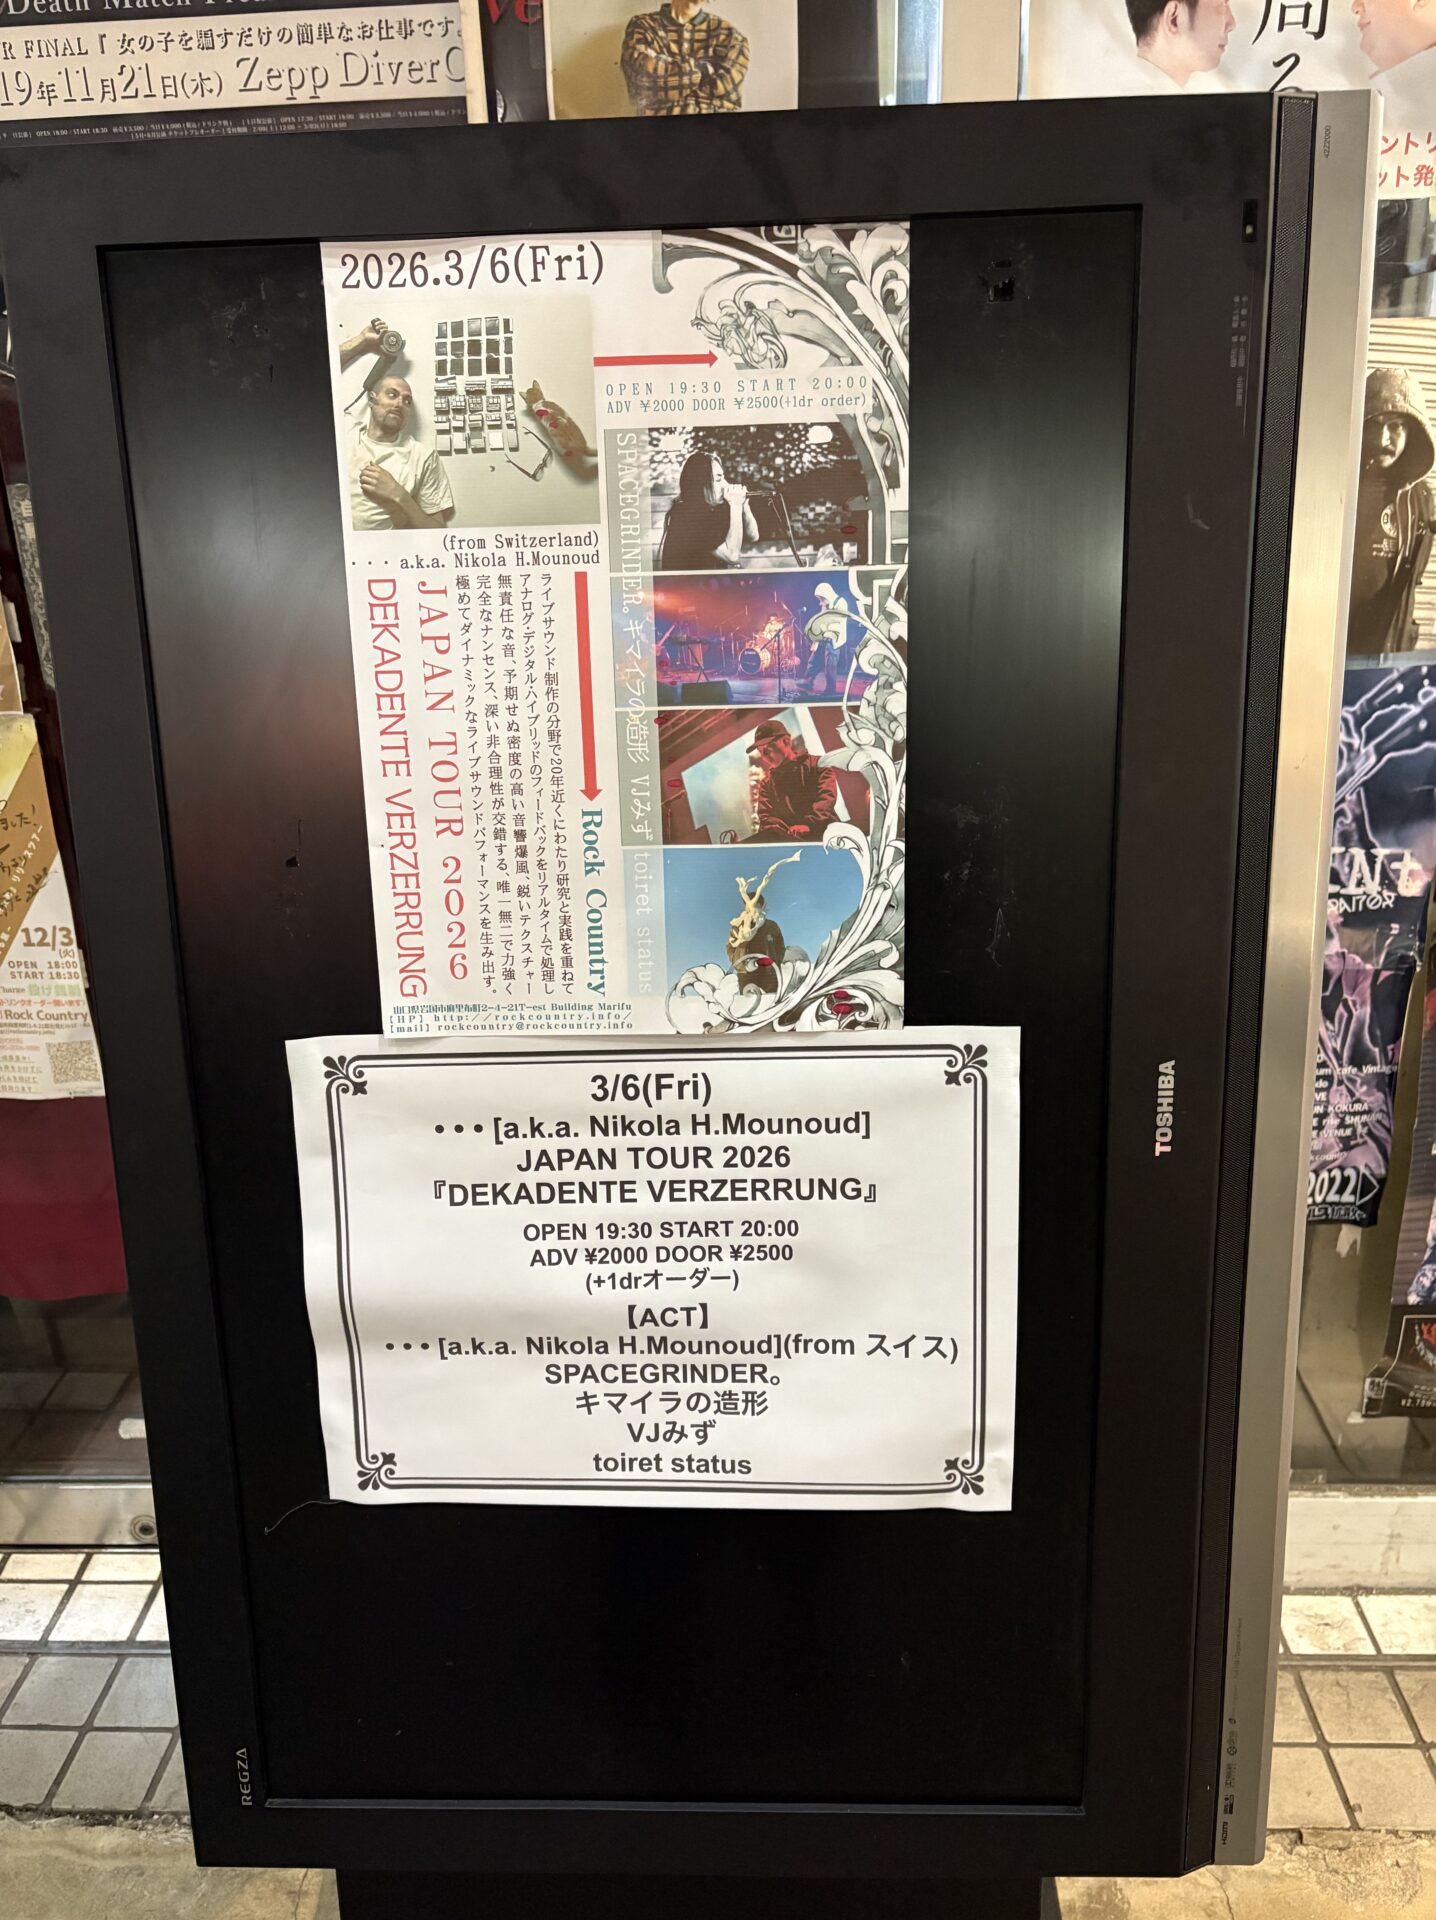 Death Match
R FINAL『 女の子を騙すだけの簡単なお仕事です
19年11月21日(木) Zepp DiverC
2026.3/6(Fri)
OPEN 19:30 START 20:00
ADV ¥2000 DOOR ¥2500(+1dr order)
(from Switzerland)
・・・ a.k.a. Nikola H.Mounoud
ライブサウンド制作の分野で20年近くにわたり研究と実践を重ねて
アナログ・デジタル・ハイブリッドのフィードバックをリアルタイムで処理し
無責任な音、予期せぬ密度の高い音響爆風、鋭いテクスチャー
完全なナンセンス、深い非合理性が交錯する、唯一無二で力強く
極めてダイナミックなライブサウンドパフォーマンスを生み出す。
JAPAN TOUR 2026
DEKADENTE VERZERRUNG
Rock Country
SPACEGRINDER。 キマイラの造形 VJみず toiret status
山口県岩国市麻里布町2-4-21T-est Building Marifu
[HP] http://rockcountry.info/
[mail] rockcountry@rockcountry.info
3/6(Fri)
・・・[a.k.a. Nikola H.Mounoud]
JAPAN TOUR 2026
『DEKADENTE VERZERRUNG』
OPEN 19:30 START 20:00
ADV ¥2000 DOOR ¥2500
(+1drオーダー)
【ACT】
・・・[a.k.a. Nikola H.Mounoud](from スイス)
SPACEGRINDER。
キマイラの造形
VJみず
toiret status
TOSHIBA
REGZA
42Z2000
12/3
(火)
OPEN 18:00
START 18:30
Rock Country
KOKURA
2022